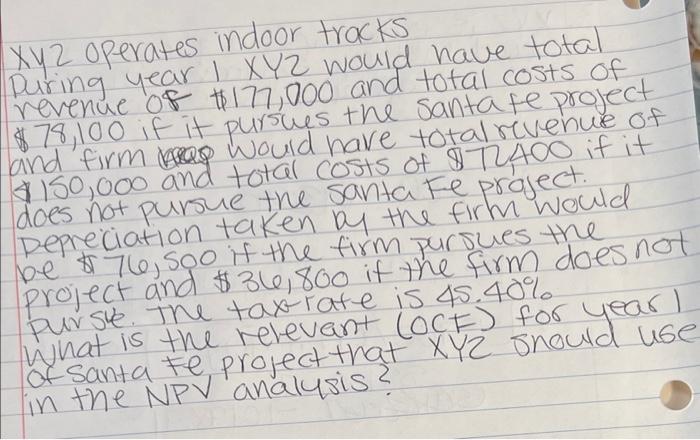 XYZ operates indoor tracks
During year 1 XYZ would have total
revenue of $177,000 and total costs of
$78,100 if it pursues the Santa Fe project
and firm would have total revenue of
$150,000 and total costs of $72,400 if it
does not pursue the Santa Fe project.
Depreciation taken by the firm would
be $76,500 if the firm pursues the
project and $36,800 if the firm does not
purste. The tax rate is 45.40%
What is the relevant (OCF) for year 1
of Santa Fe project that XYZ should use
in the NPV analysis?